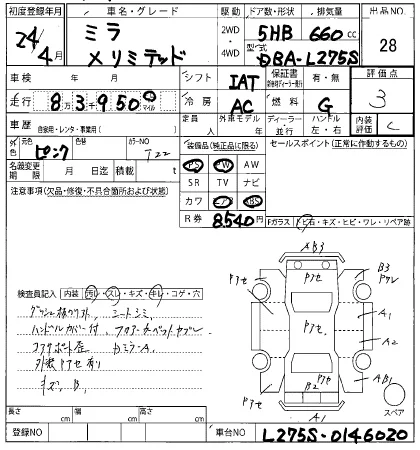 初度登録年月 車名・グレード 駆動 ドア数・形状 排気量 出品NO
24年4月 ミラ 2WD 5HB 660cc 28
メリミテッド 4WD 型式 DBA-L275S
車検 年 月 シフト IAT 保証書 有・無 評価点
走行 8万3千950 マイル 冷房 AC 燃料 G 3
車歴 自家用・レンタ・事業用( ) 定員 人 外車モデル 年 ディーラー・並行 ハンドル 左・右 内装評価 C
外色 元色 ピンク 色替 カラーNO T22 装備品(純正品に限る) セールスポイント(正常に作動するもの)
PS PW AW
名義変更期限 月 日迄 積載 t SR TV ナビ
注意事項(欠品・修復・不具合箇所および状態) カワ エアB ABS
R券 8540円 Fガラス トビ石・キズ・ヒビ・ワレ・リペア跡
AB3
アセ
B3
検査員記入 内装 汚レ・スレ・キズ・キレ・コゲ・穴
シートシミ
A1
ハンドルカバー付
A2
コアサポート歪 DミラーA
AB1
外装 アセ有リ
B2 アセ
キズ、B、
A1
スペア
長さ cm 幅 cm 高さ cm
登録NO 車台NO L275S-0146020